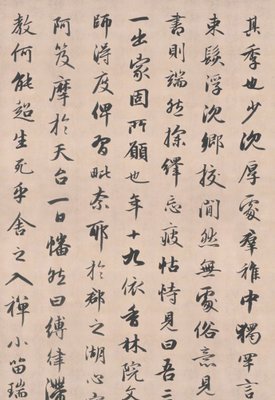 其季也少深厚處群雅中獨罕言
東髮浮沈鄉校間然無處俗意見
書則端然探繹忘疲怙恃見曰吾三
一出家固所願也年十九依香林院文
師得度俾習毗奈耶於郡之湖心寺
阿笈摩於天台一日幡然曰縛律滯
教何能超生死乎舍之入禪小笛瑞